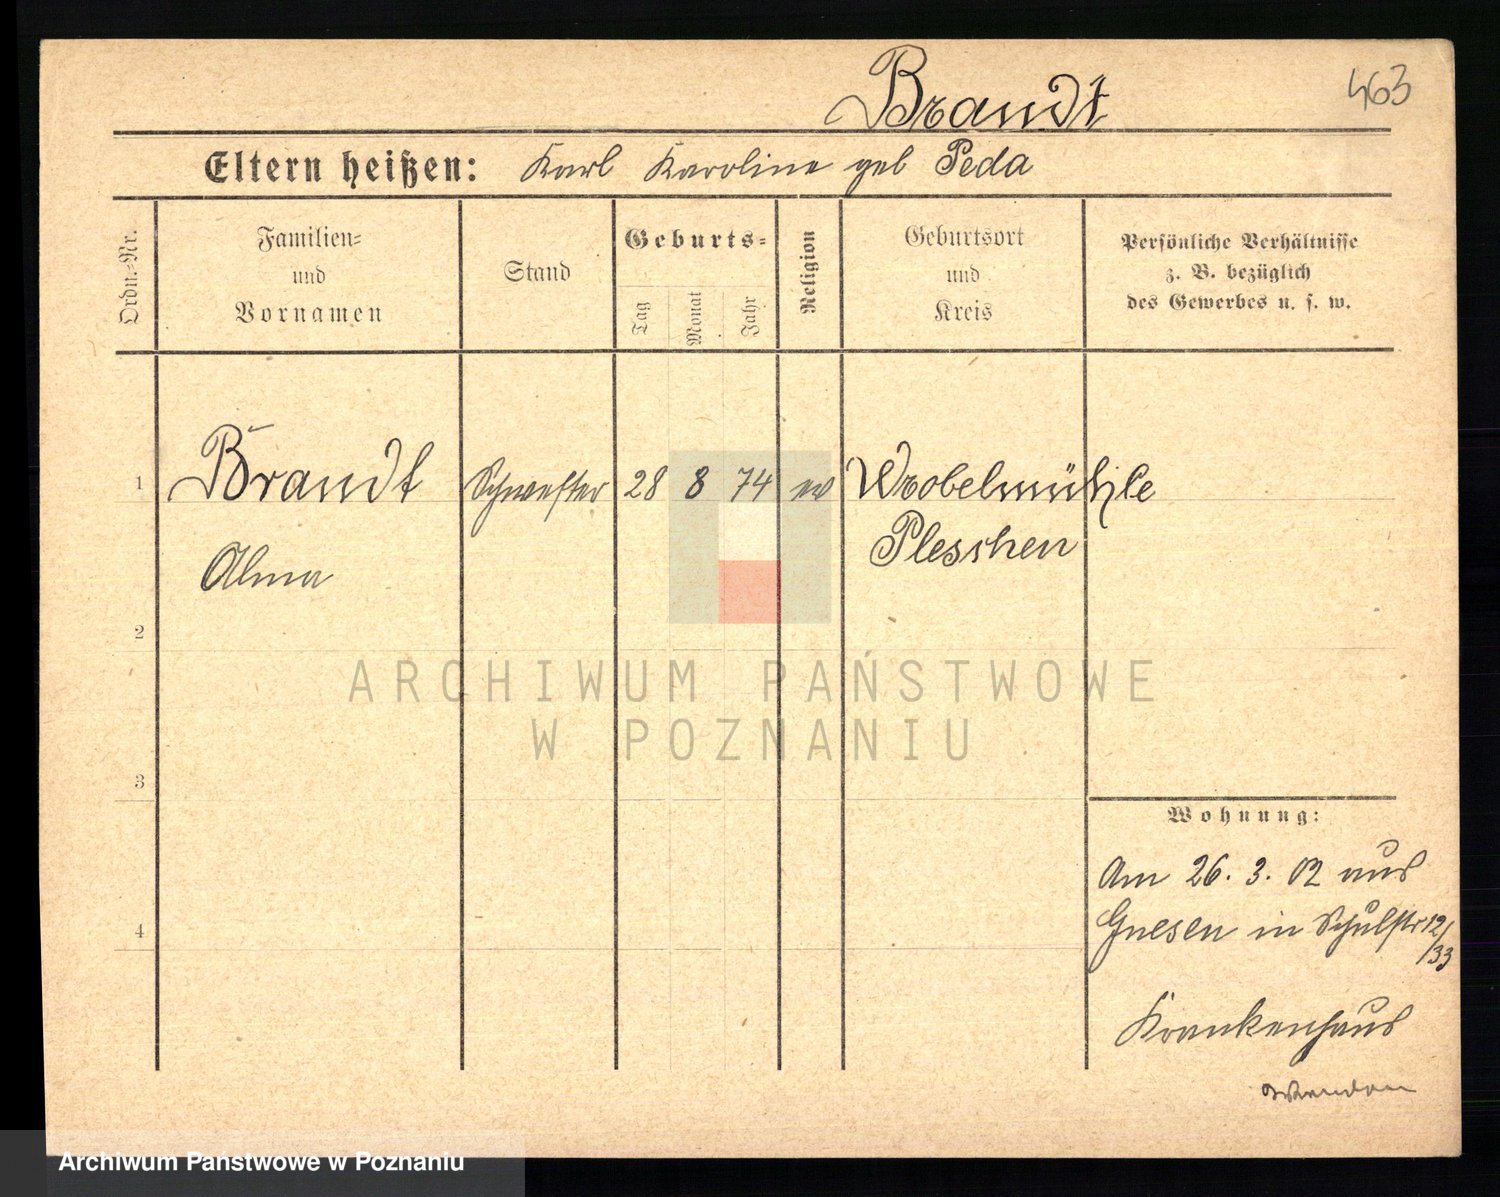 463
Brandt
Eltern heißen: Karl Karoline geb Peda
Ordn.-Nr.
Familien-
und
Vornamen
Stand
Geburts-
Tag
Monat
Jahr
Religion
Geburtsort
und
Kreis
Persönliche Verhältnisse
z. B. bezüglich
des Gewerbes u. s. w.
1 Brandt Schwester 28 8 74 ev Wrobelmühle
Alma Plesshen
2
3
4
ARCHIWUM PAŃSTWOWE
W POZNANIU
Wohnung:
Am 26. 3. 02 aus
Gnesen in Schulstr 12/
/33
Krankenhaus
Archiwum Państwowe w Poznaniu